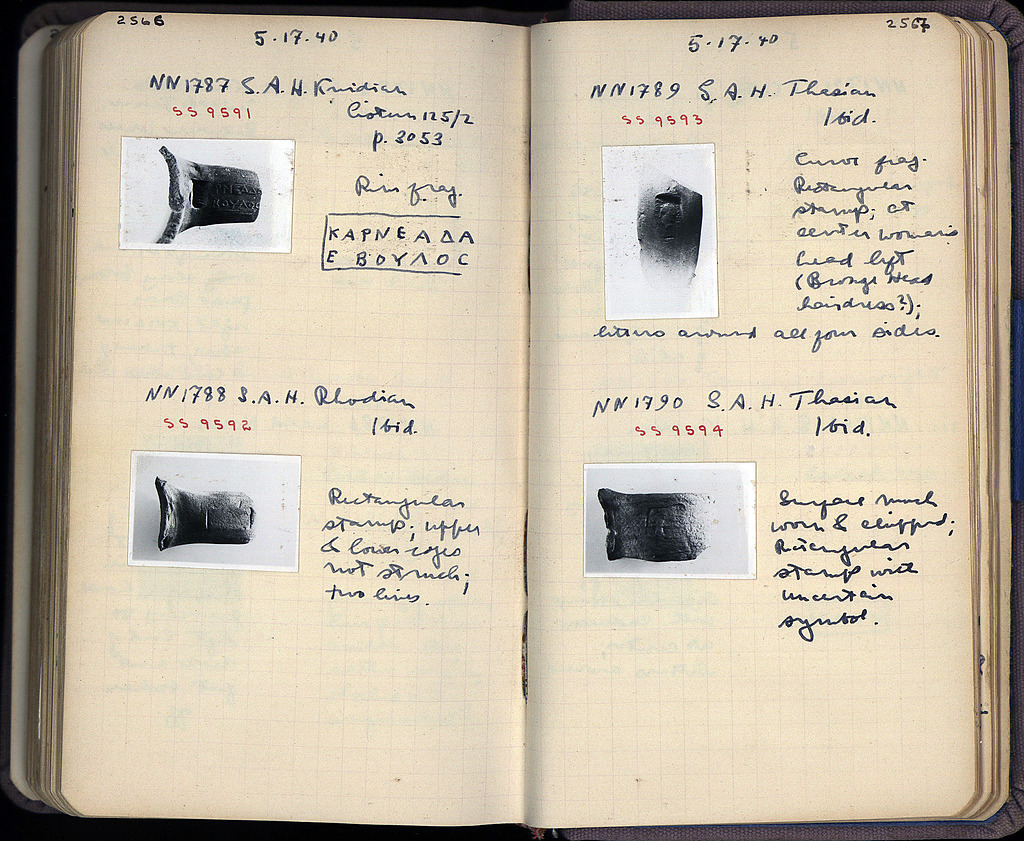 2566
5·17·40
NN1787 S.A.H. Knidian
SS 9591
Cistern 125/2
p. 3053
Rim frag.
ΚΑΡΝΕΑΔΑ
Ε ΒΟΥΛΟC
NN1788 S.A.H. Rhodian
SS 9592
Ibid.
Rectangular
stamp; upper
& lower edges
not struck;
two lines.
2567
5·17·40
NN1789 S.A.H. Thasian
SS 9593
Ibid.
Curve frag.
Rectangular
stamp; at
center woman's
head left
(Bronze Head
hairdress?);
letters around all four sides.
NN1790 S.A.H. Thasian
SS 9594
Ibid.
Surface much
worn & chipped;
Rectangular
stamp with
uncertain
symbol.